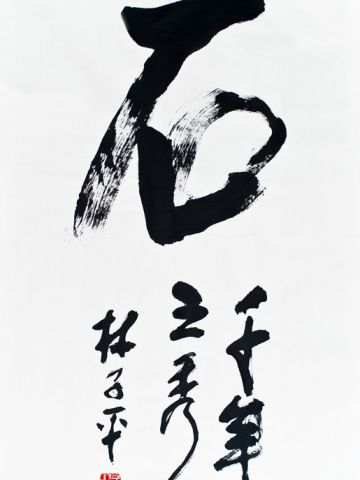 石
千年
之秀
林子平